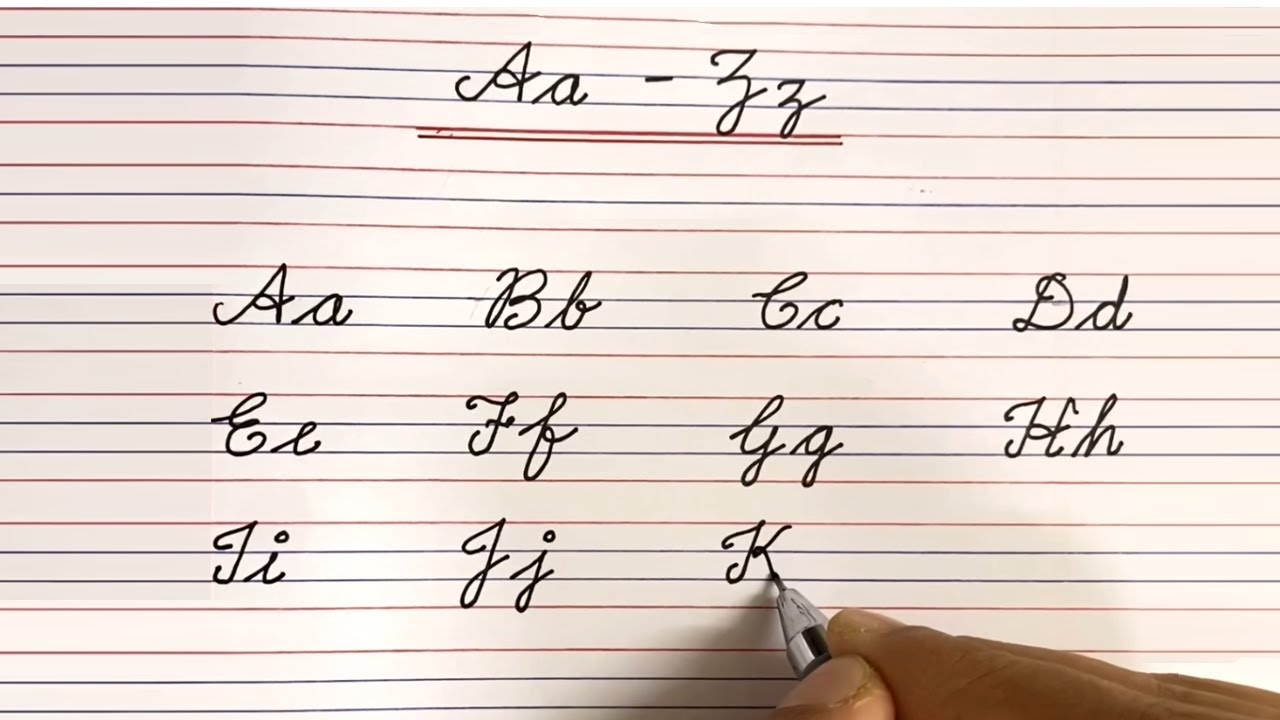 Aa - Zz
Aa Bb Cc Dd
Ee Ff Gg Hh
Ii Jj K